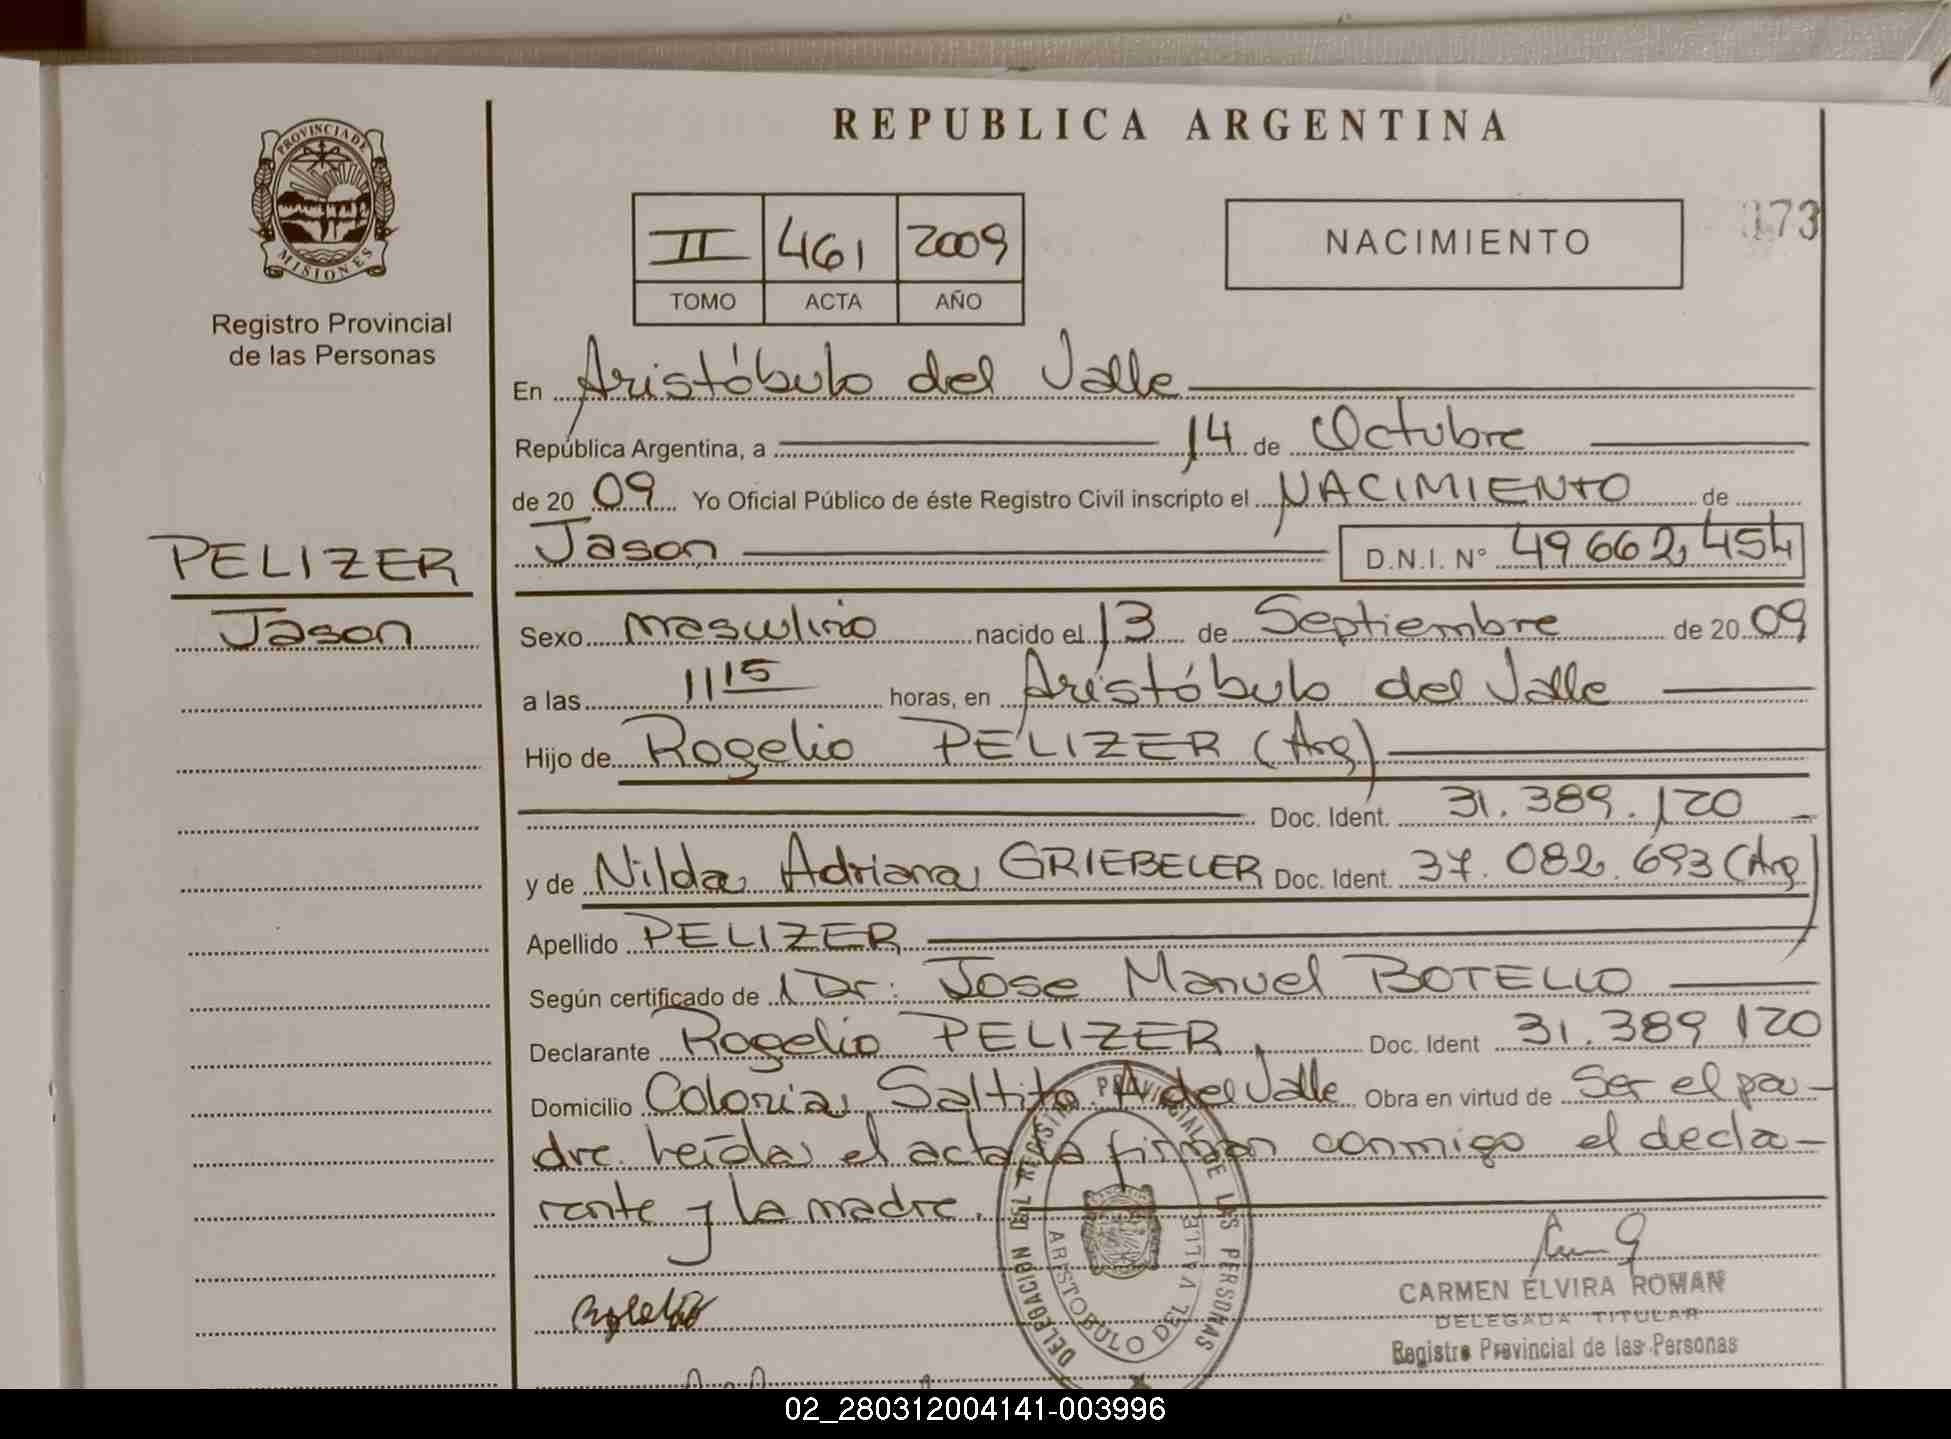 REPUBLICA ARGENTINA
PROVINCIA DE MISIONES
Registro Provincial
de las Personas
II 461 2009
TOMO ACTA AÑO
NACIMIENTO
173
PELIZER
Jason
En Aristóbulo del Valle
República Argentina, a 14 de Octubre
de 20 09 Yo Oficial Público de éste Registro Civil inscripto el NACIMIENTO de
Jason D.N.I. N° 49662454
Sexo masculino nacido el 13 de Septiembre de 20 09
a las 11 15 horas, en Aristóbulo del Valle
Hijo de Rogelio PELIZER (Arg)
Doc. Ident. 31.389.120
y de Nilda Adriana GRIEBELER Doc. Ident. 37.082.693 (Arg)
Apellido PELIZER
Según certificado de Dr: Jose Manuel BOTELLO
Declarante Rogelio PELIZER Doc. Ident 31.389 120
Domicilio Colonia Saltito A del Valle Obra en virtud de Ser el pa-
dre. Leída el acta la firman conmigo el decla-
rante y la madre.
DELEGACION DEL REGISTRO PROVINCIAL DE LAS PERSONAS
ARISTOBULO DEL VALLE
CARMEN ELVIRA ROMAN
DELEGADA TITULAR
Registro Provincial de las Personas
02_280312004141-003996